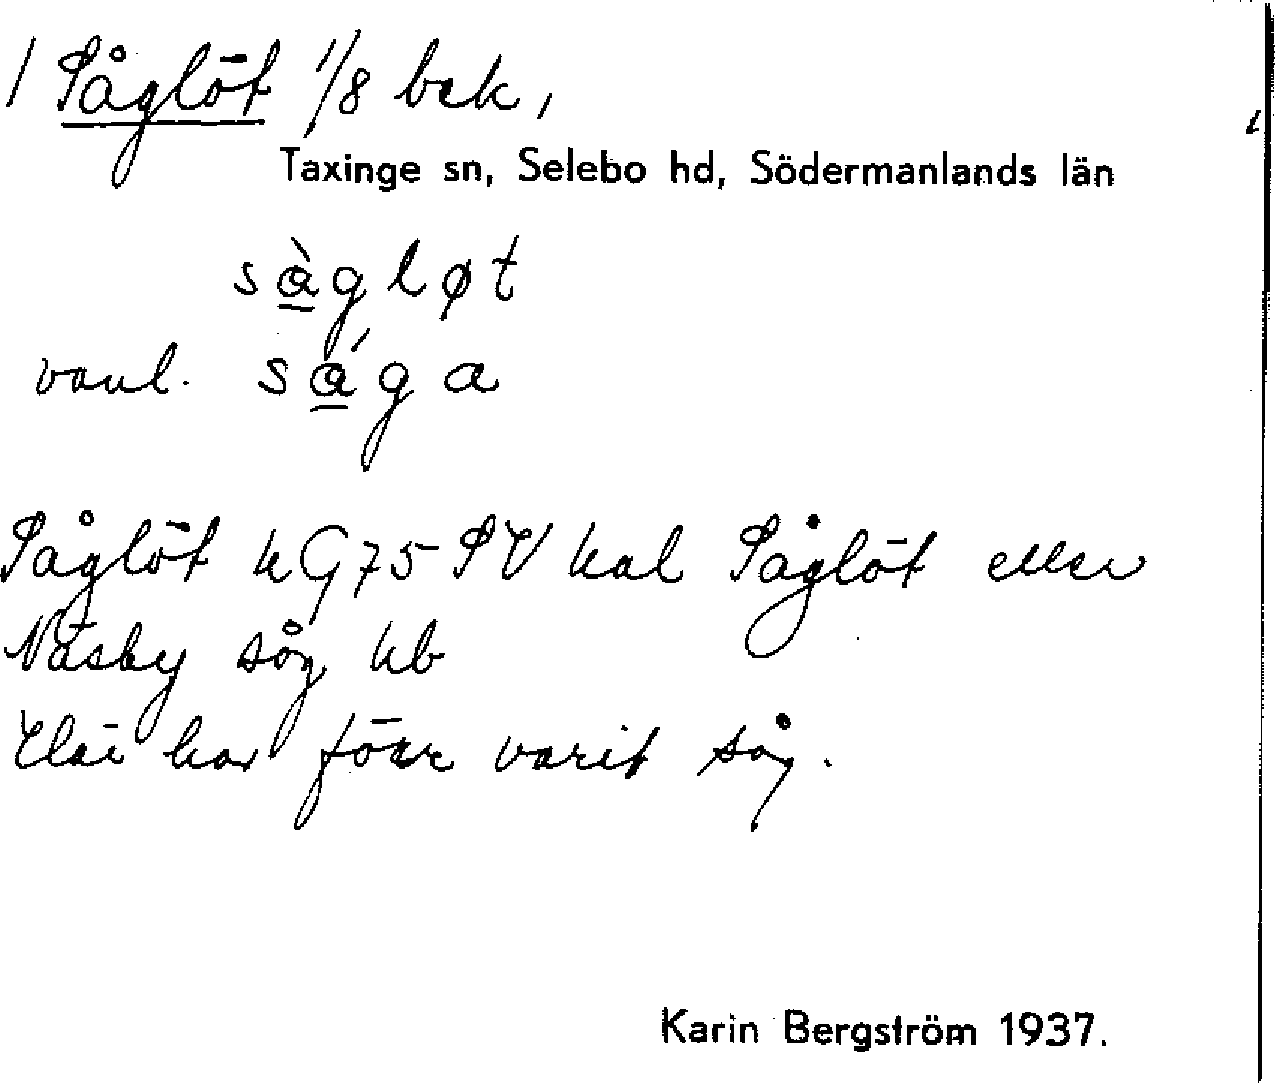 / Såglöt 1/8 bek,
Taxinge sn, Selebo hd, Södermanlands län
sàgløt
vanl. sága
Såglöt kG 75 SV kal Såglöt eller
Näsby såg kb
Där har förr varit såg.
Karin Bergström 1937.